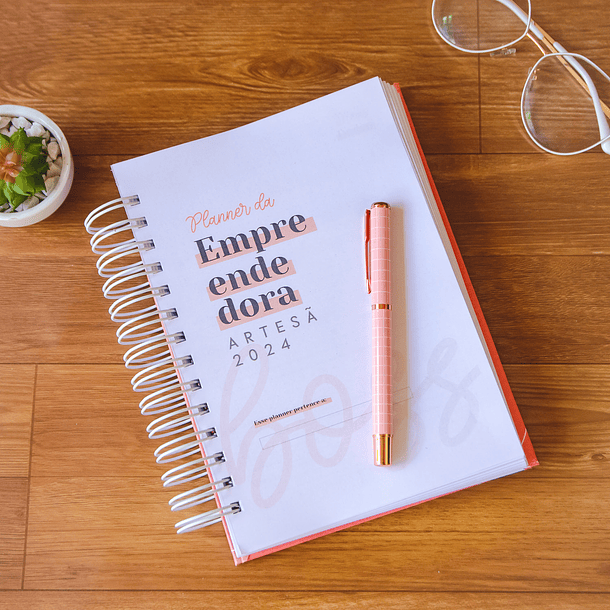 Planner da
Empre
ende
dora
ARTESÃ
2024
boss
Esse planner pertence a: